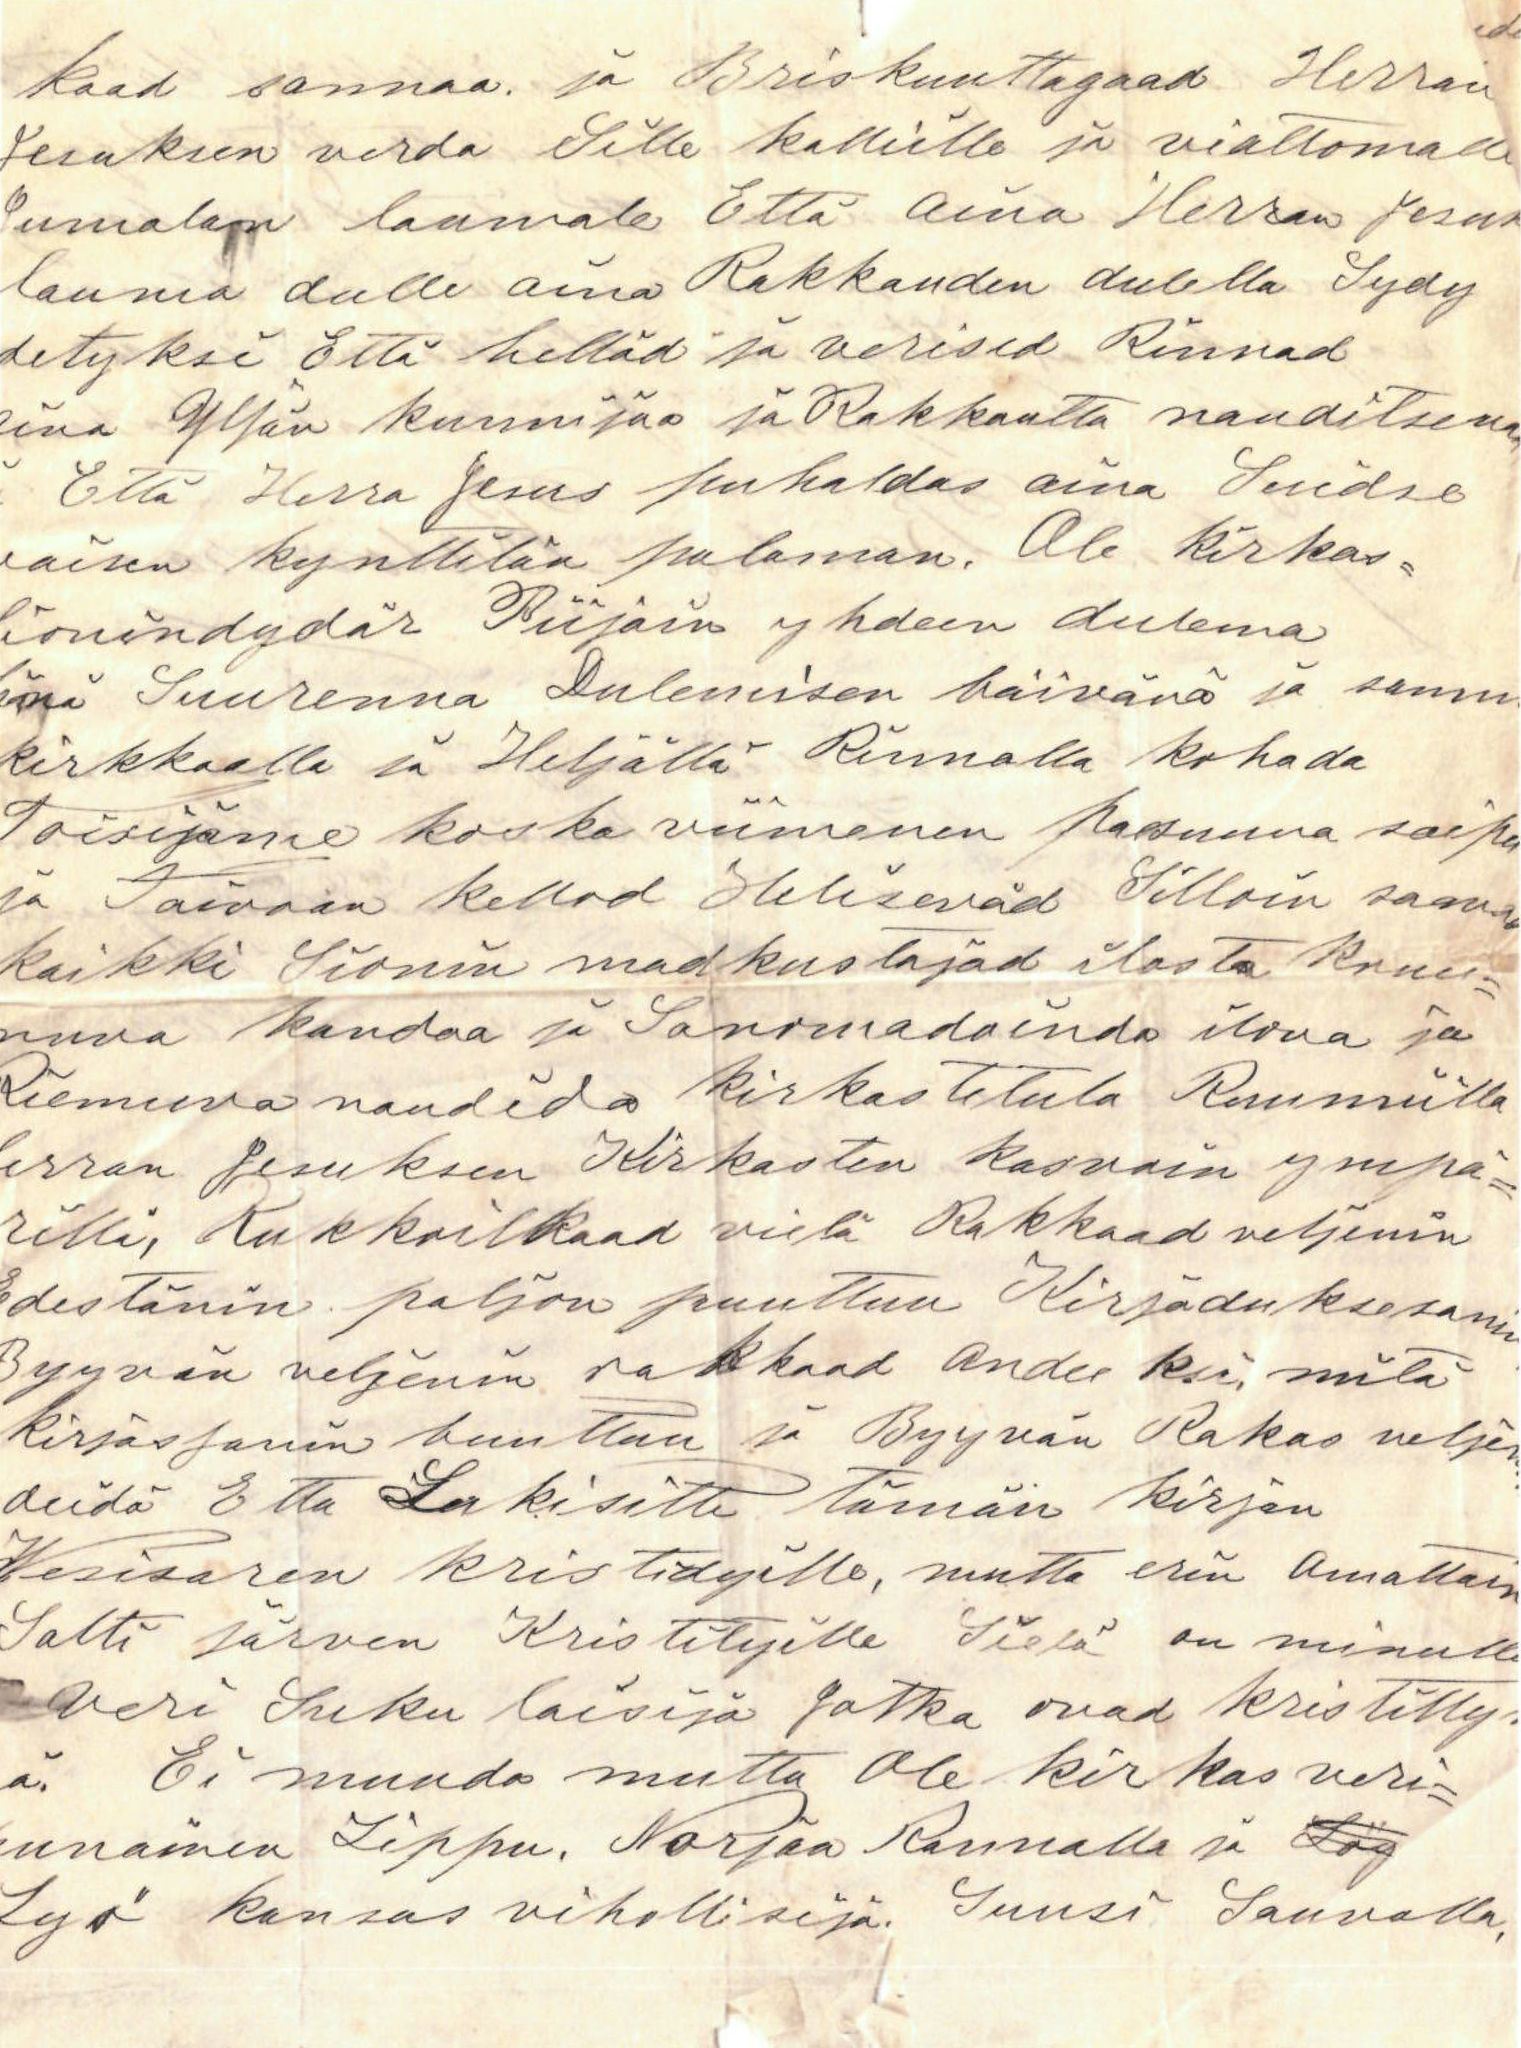 kaad sannaa. ja Briskuuttagaad Herran
Jesuksen verda Sille kalliille ja viattomalle
Jumalan laumale Että aina Herran Jesuk
lauma dulle aina Rakkauden dulella Sydy
detyksi Että helläd ja verised Rinnad
aina Yljän kunnijaa ja Rakkautta nauditsevad
Että Herra Jesus puhaldas aina Suidse
vaisen kynttilän palaman. Ole kirkas=
Sionindydär Piijain yhdeen dulema
Suurenna Dulemisen bäivänä ja samm
kirkkaalla ja Heljällä Rinnalla kohada
Toisijame koska viimenen pasunna soipu
ja Taivaan kellod Heliseväd Silloin saavad
kaikki Sionin madkustajad ilosta kruu=
nuva kandaa ja Sanomadoinda ilova ja
Riemuva naudida kirkastitula Ruumiilla
Herran Jesuksen Kirkasten kasvoin ympä=
rillä, Rukkoilkaad vielä Rakkaad veljenin
Edestänin paljon puuttuu Kirjäduksesanin
Byyvän veljenin rakkaad Andeeksi, mitä
kirjasjanin buuttuu ja Byyvän Rakas veljen
deidä Etta Lukisitte tämän kirjan
Vesisaren kristidyille, mutta erin Amattain
Salti järven Kristityille Sielä on minulle
veri Sukulaisijä Jotka ovad kristitty
ä. Ei muuda mutta Ole kirkas veri=
unainen Lippu. Norjaa Rannalla ja Löy
Lyö kansas vihollisijä. Suusi Sauvalla,